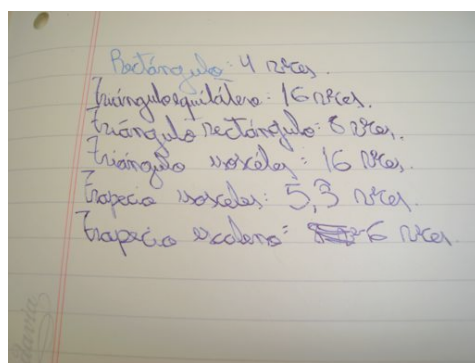 Rectángulo: 4 veces.
Triángulo equilátero: 16 veces.
Triángulo rectángulo: 8 veces.
Triángulo isoscéles: 16 veces.
Trapecio isosceles: 5,3 veces.
Trapecio escaleno: 6 veces.